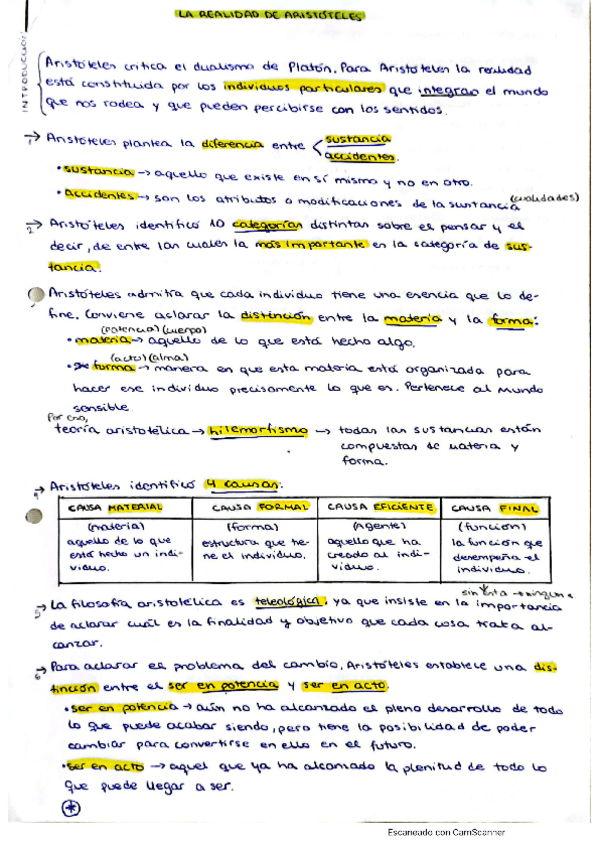 LA REALIDAD DE ARISTÓTELES
INTRODUCCIÓN
Aristóteles critica el dualismo de Platón. Para Aristóteles la realidad
está constituida por los individuos particulares que integran el mundo
que nos rodea y que pueden percibirse con los sentidos.
1 → Aristóteles plantea la diferencia entre < sustancia
accidentes.
• sustancia → aquello que existe en sí mismo y no en otro.
• accidentes → son los atributos o modificaciones de la sustancia (cualidades)
2 → Aristóteles identificó 10 categorías distintas sobre el pensar y el
decir, de entre las cuales la más importante es la categoría de sus-
tancia.
Aristóteles admitía que cada individuo tiene una esencia que lo de-
fine. Conviene aclarar la distinción entre la materia y la forma:
(potencia) (cuerpo)
• materia → aquello de lo que está hecho algo.
(acto) (alma)
• forma → manera en que esta materia está organizada para
hacer ese individuo precisamente lo que es. Pertenece al mundo
sensible.
Por eso,
teoría aristotélica → hilemorfismo → todas las sustancias están
compuestas de materia y
forma.
4 → Aristóteles identificó 4 causas:
CAUSA MATERIAL CAUSA FORMAL CAUSA EFICIENTE CAUSA FINAL
(materia) (forma) (Agente) (función)
aquello de lo que estructura que tie- aquello que ha la función que
está hecho un indi- ne el individuo. creado al indi- desempeña el
viduo. viduo. individuo.
sin esta → ninguna
5 → La filosofía aristotélica es teleológica, ya que insiste en la importancia
de aclarar cuál es la finalidad y objetivo que cada cosa trata al-
canzar.
6 → Para aclarar el problema del cambio, Aristóteles establece una dis-
tinción entre el ser en potencia y ser en acto.
• ser en potencia → aún no ha alcanzado el pleno desarrollo de todo
lo que puede acabar siendo, pero tiene la posibilidad de poder
cambiar para convertirse en ello en el futuro.
• ser en acto → aquel que ya ha alcanzado la plenitud de todo lo
que puede llegar a ser.
*
Escaneado con CamScanner